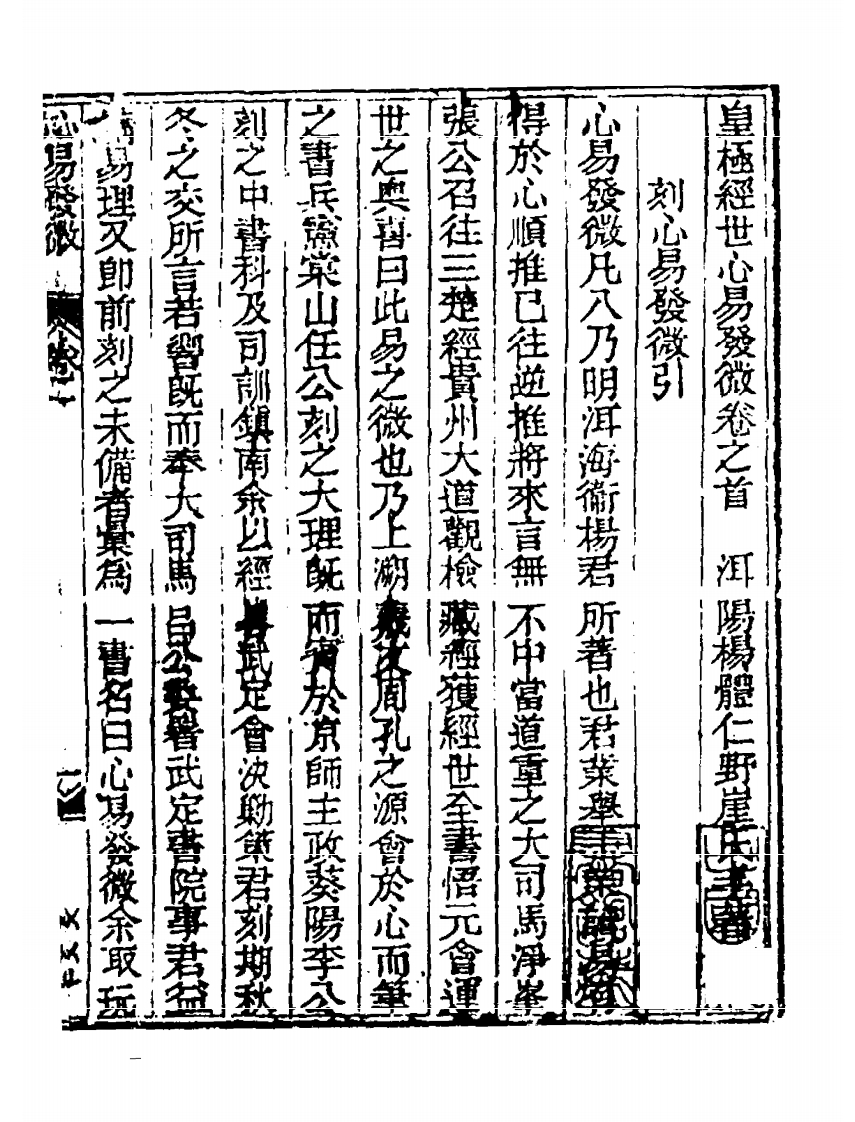 皇極經世心易發微卷之首　洱陽楊體仁野崖氏著
刻心易發微引
心易發微凡八乃明洱海衞楊君所著也君業舉
得於心順推已往逆推將來言無不中當道重之大司馬淨峯
張公召往三楚經貴州大道觀檢藏經獲經世全書悟元會運
世之奧喜曰此易之微也乃上溯羲文周孔之源會於心而筆
之書兵憲棠山任公刻之大理旣而賓於京師主政葵陽李公
刻之中書科及司訓鎮南余以經署武定會決勦策君刻期秋
冬之交所言若響旣而奉大司馬呂公委署武定書院事君益
易理又卽前刻之未備者彙爲一書名曰心易發微余取玩
心易發微